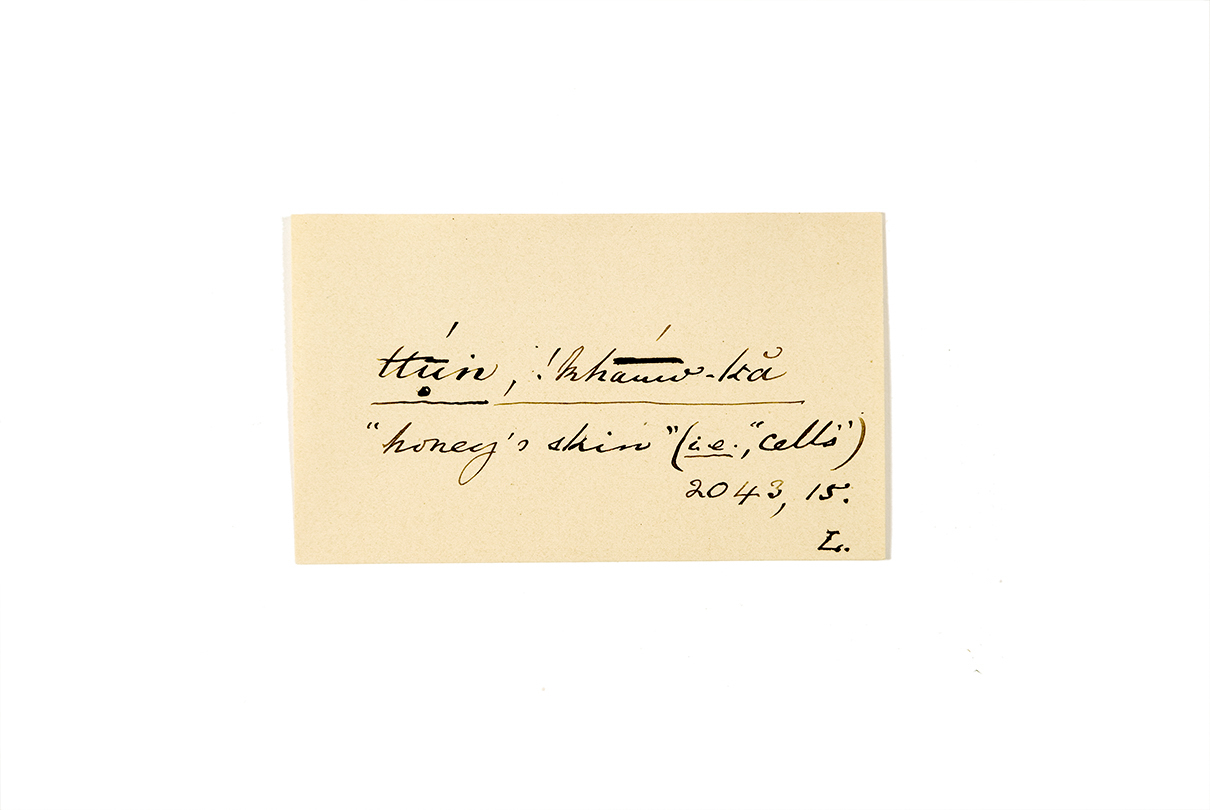 ttụ̄́in, !khā́ūw-kă
"honey's skin" (i.e., "cells")
2043, 15.
L.